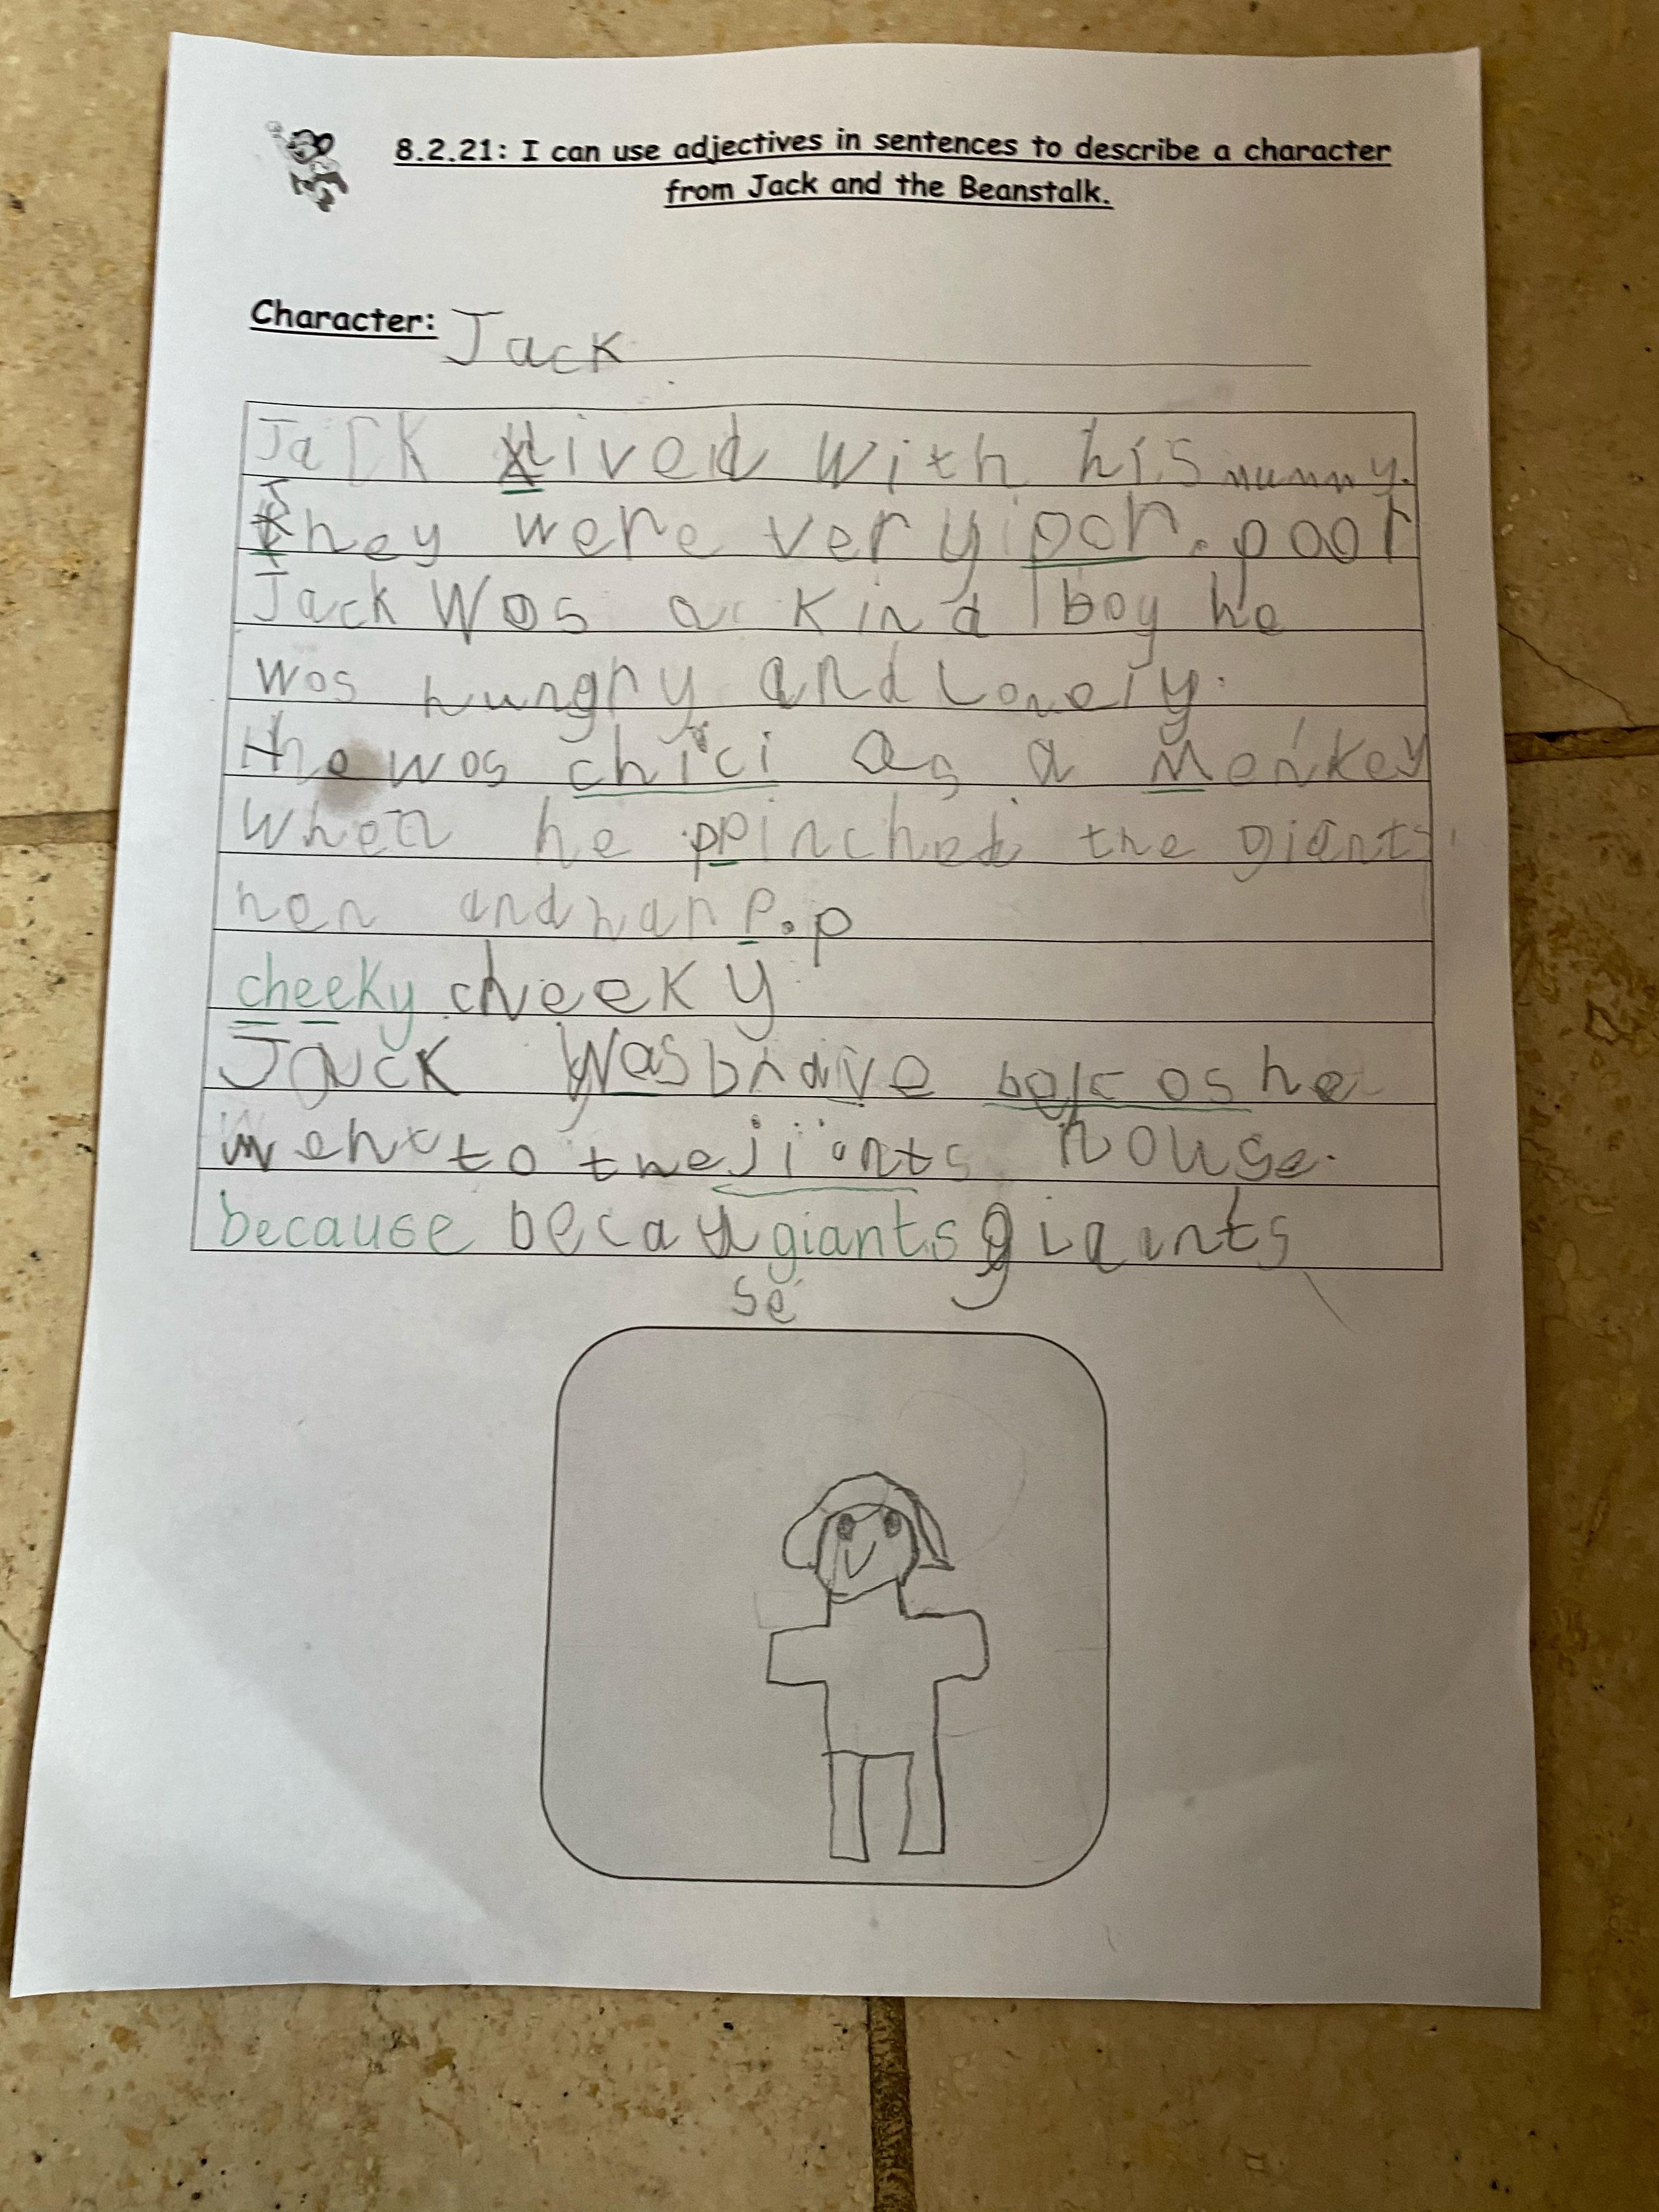 8.2.21: I can use adjectives in sentences to describe a character
from Jack and the Beanstalk.
Character: Jack
Jack lived with his mummy.
They were very porr. poor
Jack wos a kind boy he
wos hungry and Lonely.
He wos chici as a Monkey
When he pinched the giants
hen and harp. p
cheeky cheeky
Jack Was brave bekcos he
went to the jiants house.
because becau giants giants
se